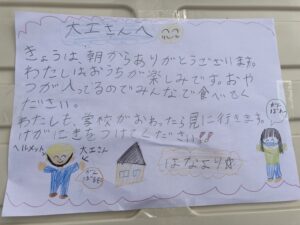 大工さんへ
きょうは朝からありがとうございます。
わたしはおうちが楽しみです。おや
つが入ってるのでみんなで食べてく
ださい。
わたしも、学校がおわったら見に行きます。
けがにきをつけてください!!
はなより☆
ヘルメット
大工さん